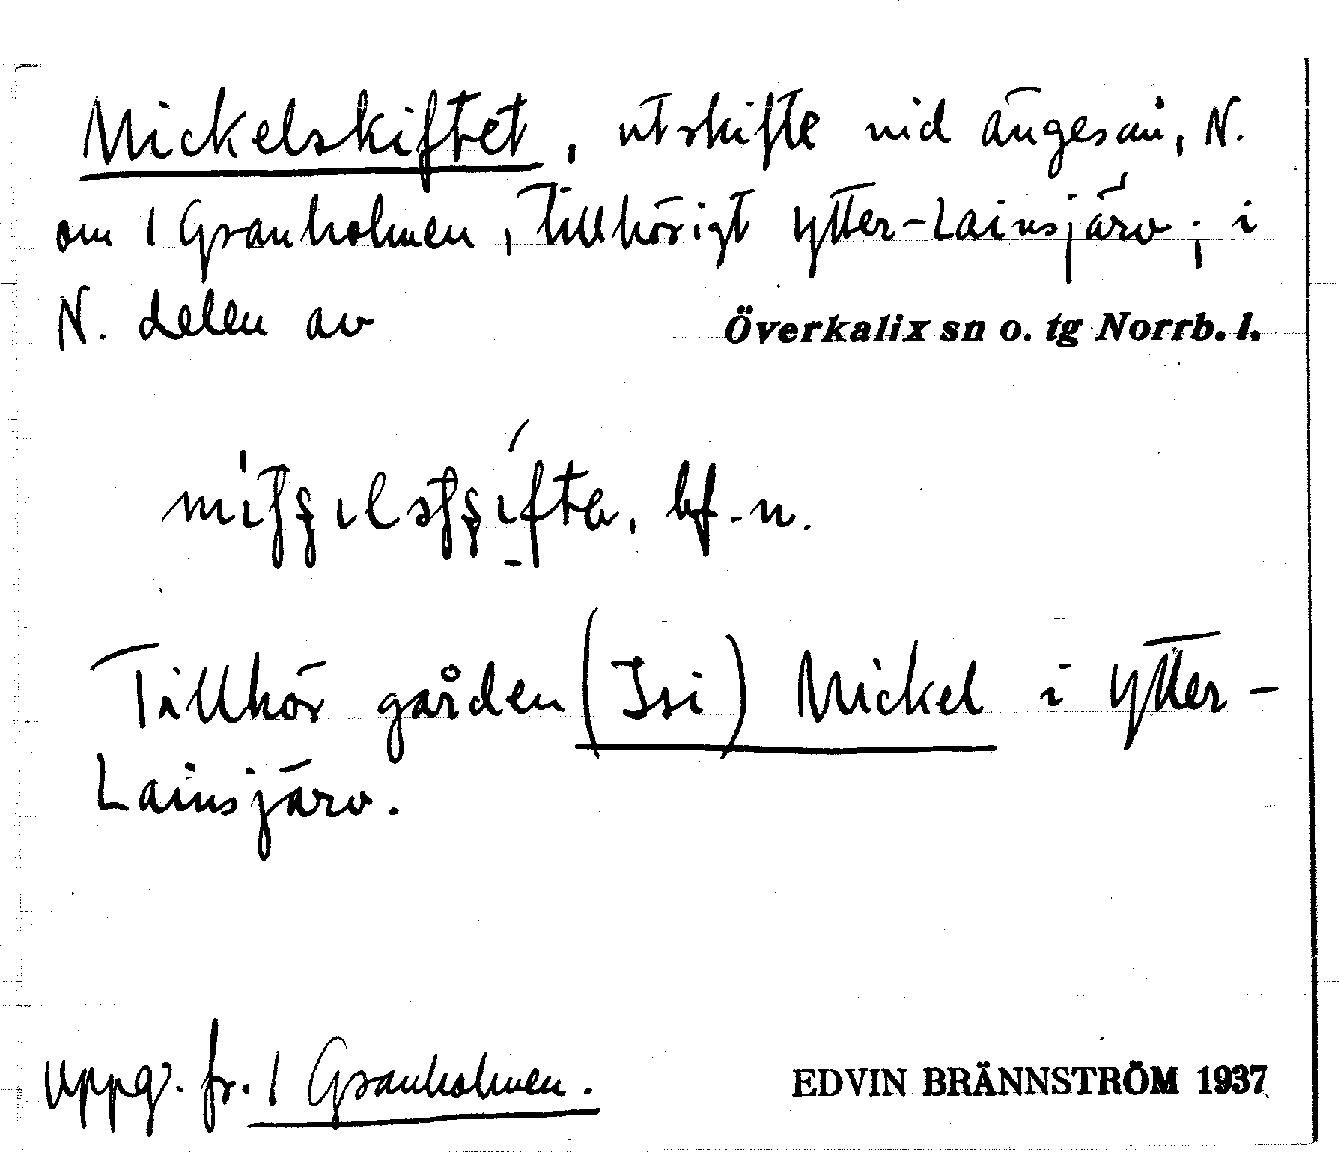 Mickelskiftet, utskifte vid ängesån, N.
om 1 Granholmen, tillhörigt Ytter-Lainsjärv; i
N. delen av Överkalix sn o. tg Norrb. l.
bf. n.
Tillhör gården (Isi) Mickel i Ytter-
Lainsjärv.
Uppg. fr. 1 Granholmen.
EDVIN BRÄNNSTRÖM 1937